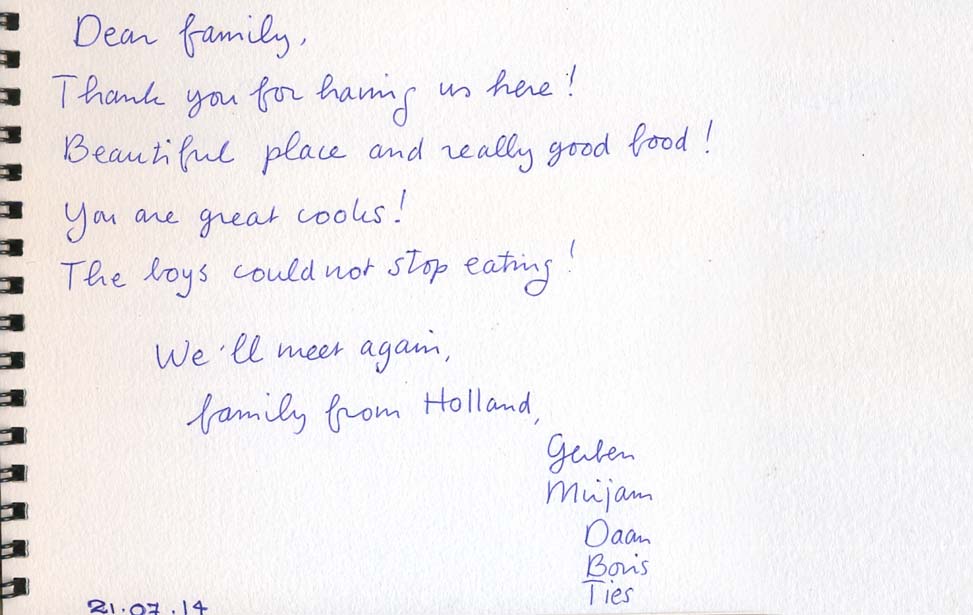 Dear family,
Thank you for having us here!
Beautiful place and really good food!
You are great cooks!
The boys could not stop eating!
We'll meet again,
family from Holland,
Gerben
Mirjam
Daan
Boris
Ties
21.07.14